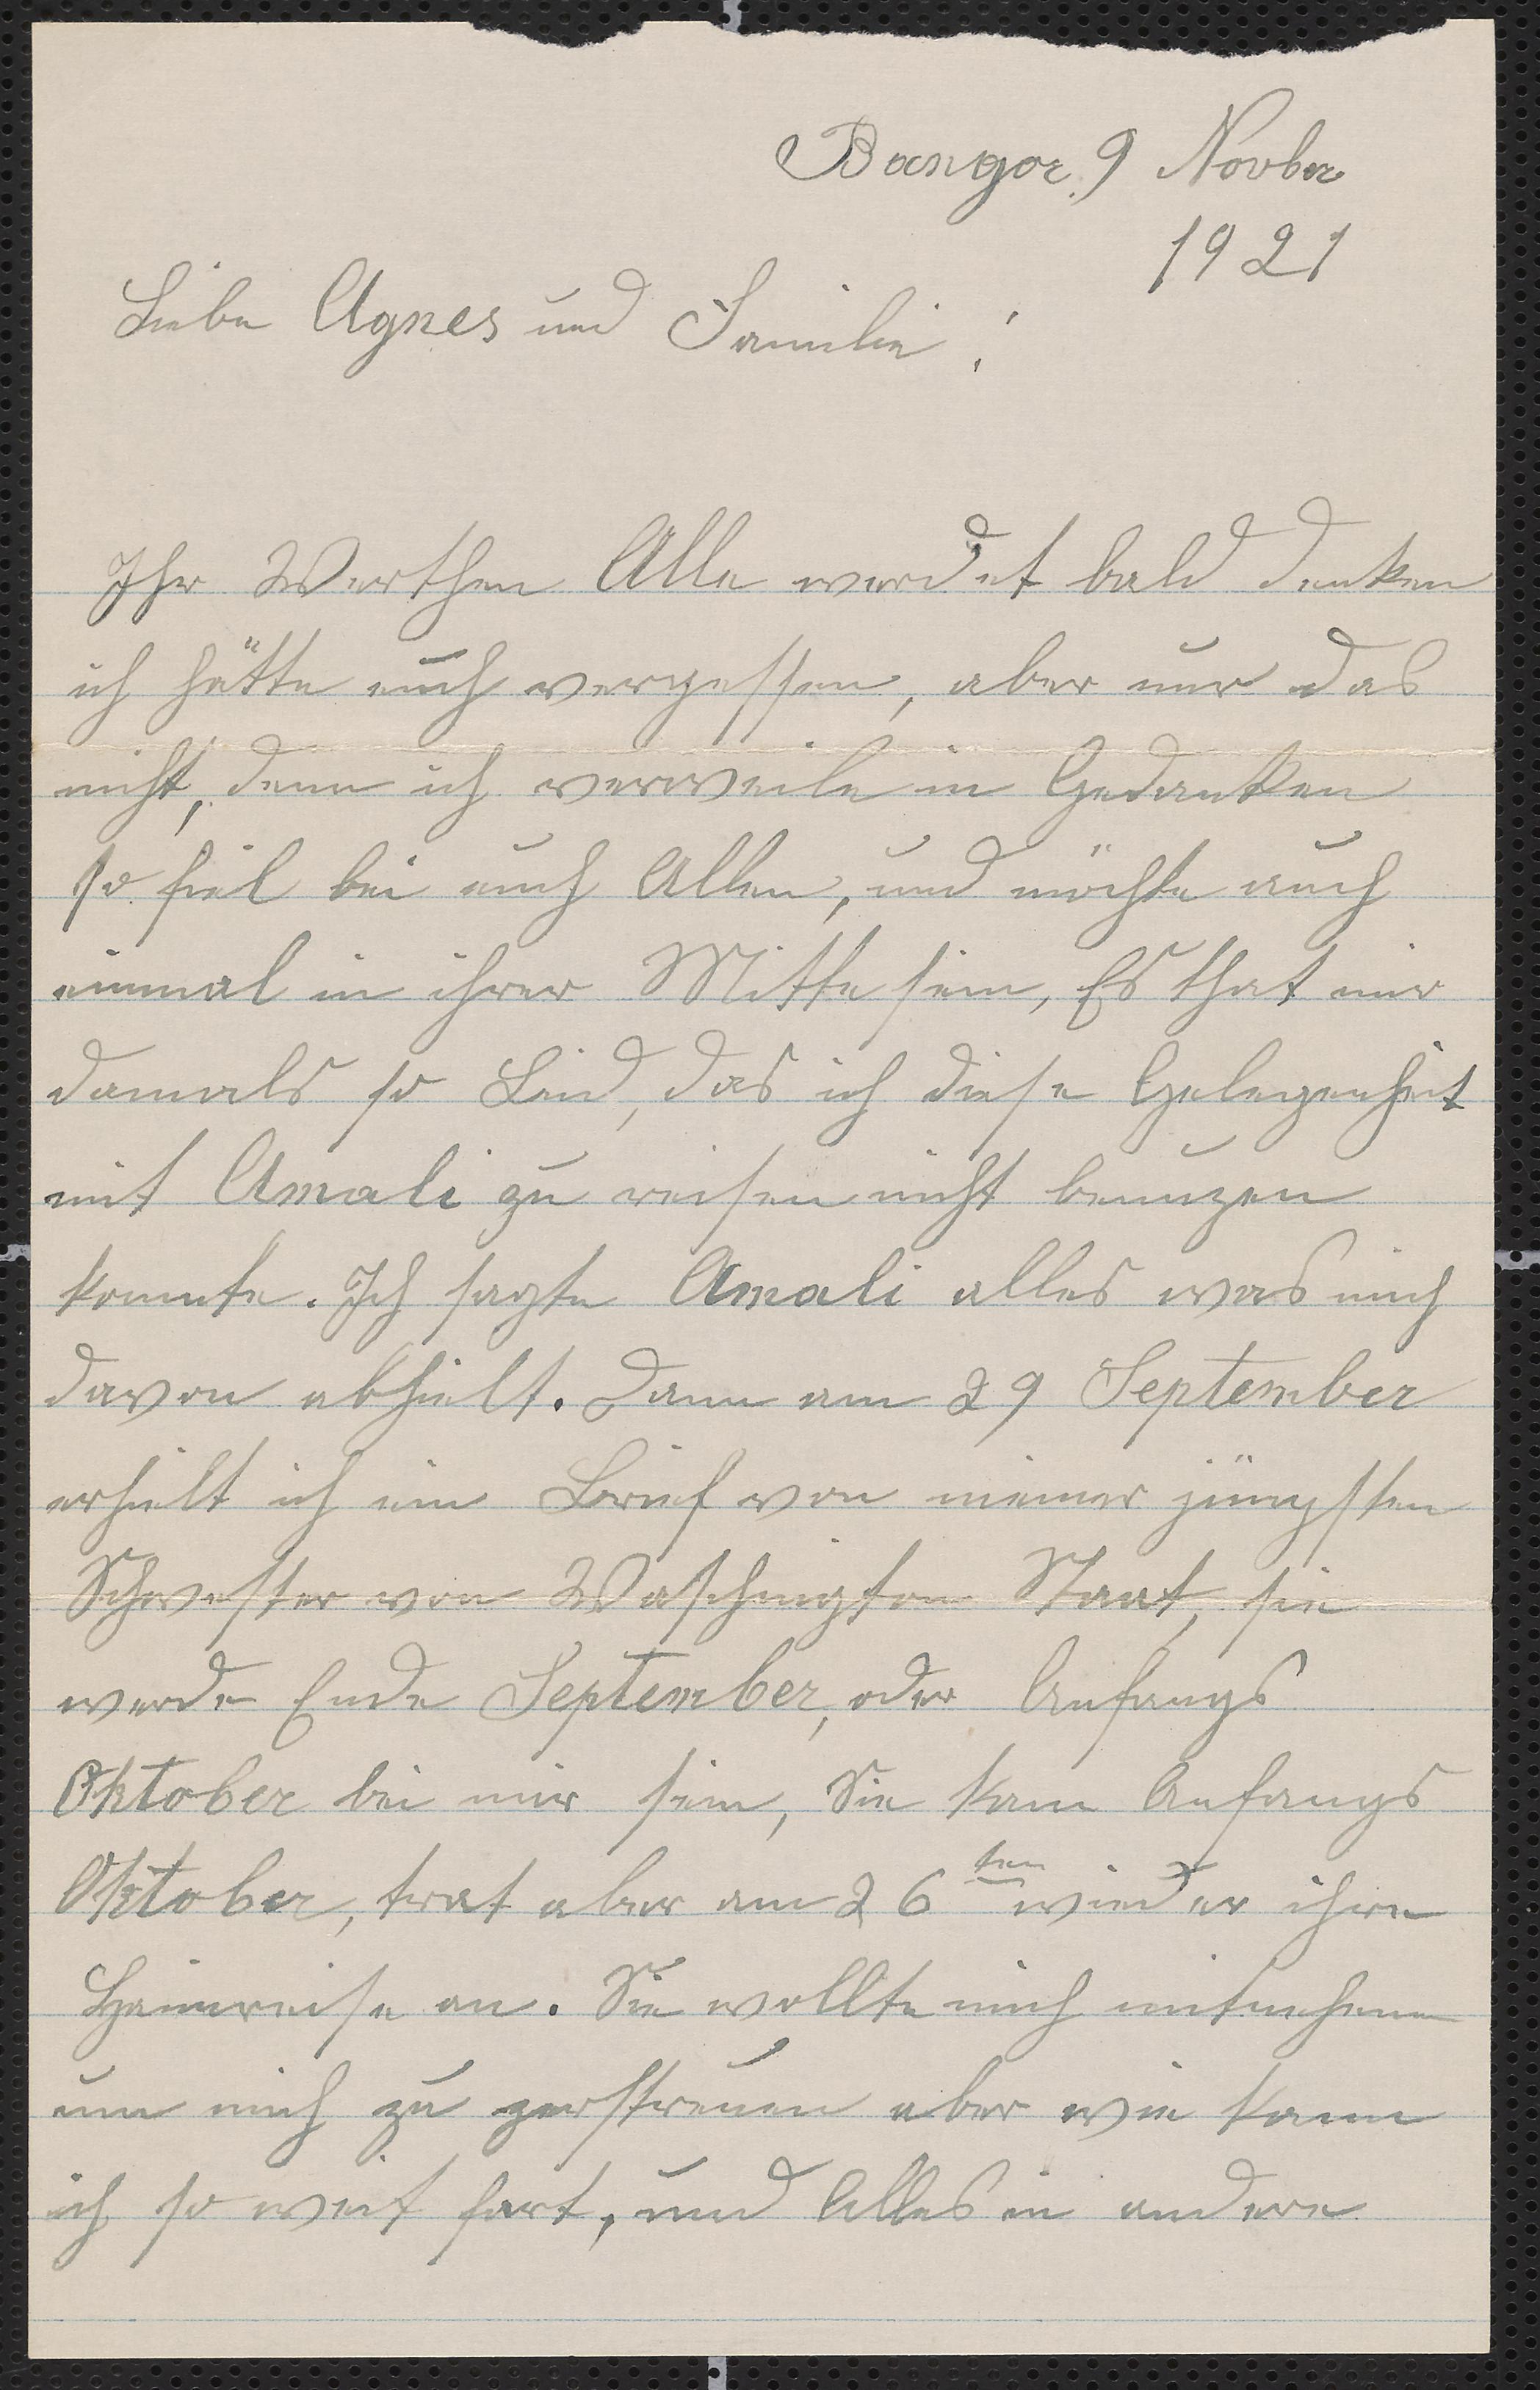 Bangor. 9 Novber
1921
Liebe Agnes und Familie!
Ihr Werthen Alle werdet bald denken
ich hätte euch vergessen, aber nur das
nicht, denn ich verweile in Gedanken
so fiel bei euch Allen, und möchte auch
einmal in ihrer Mitte sein, Es that mir
damals so Leid, das ich diese Gelegenheit
mit Amali zu reisen nicht benuzen
konnte. Ich sagte Amali alles was mich
davon abhielt. Dann am 29 September
erhielt ich ein Brief von meiner jüngsten
Schwester von Waschington Staat, sie
werde Ende September, oder Anfangs
Oktober bei mir sein, Sie kam Anfangs
Oktober, trat aber am 26ten wieder ihre
Heimreise an. Sie wollte mich mitnehmen
um mich zu zerstreuen aber wie kann
ich so weit fort, und Alles in andere